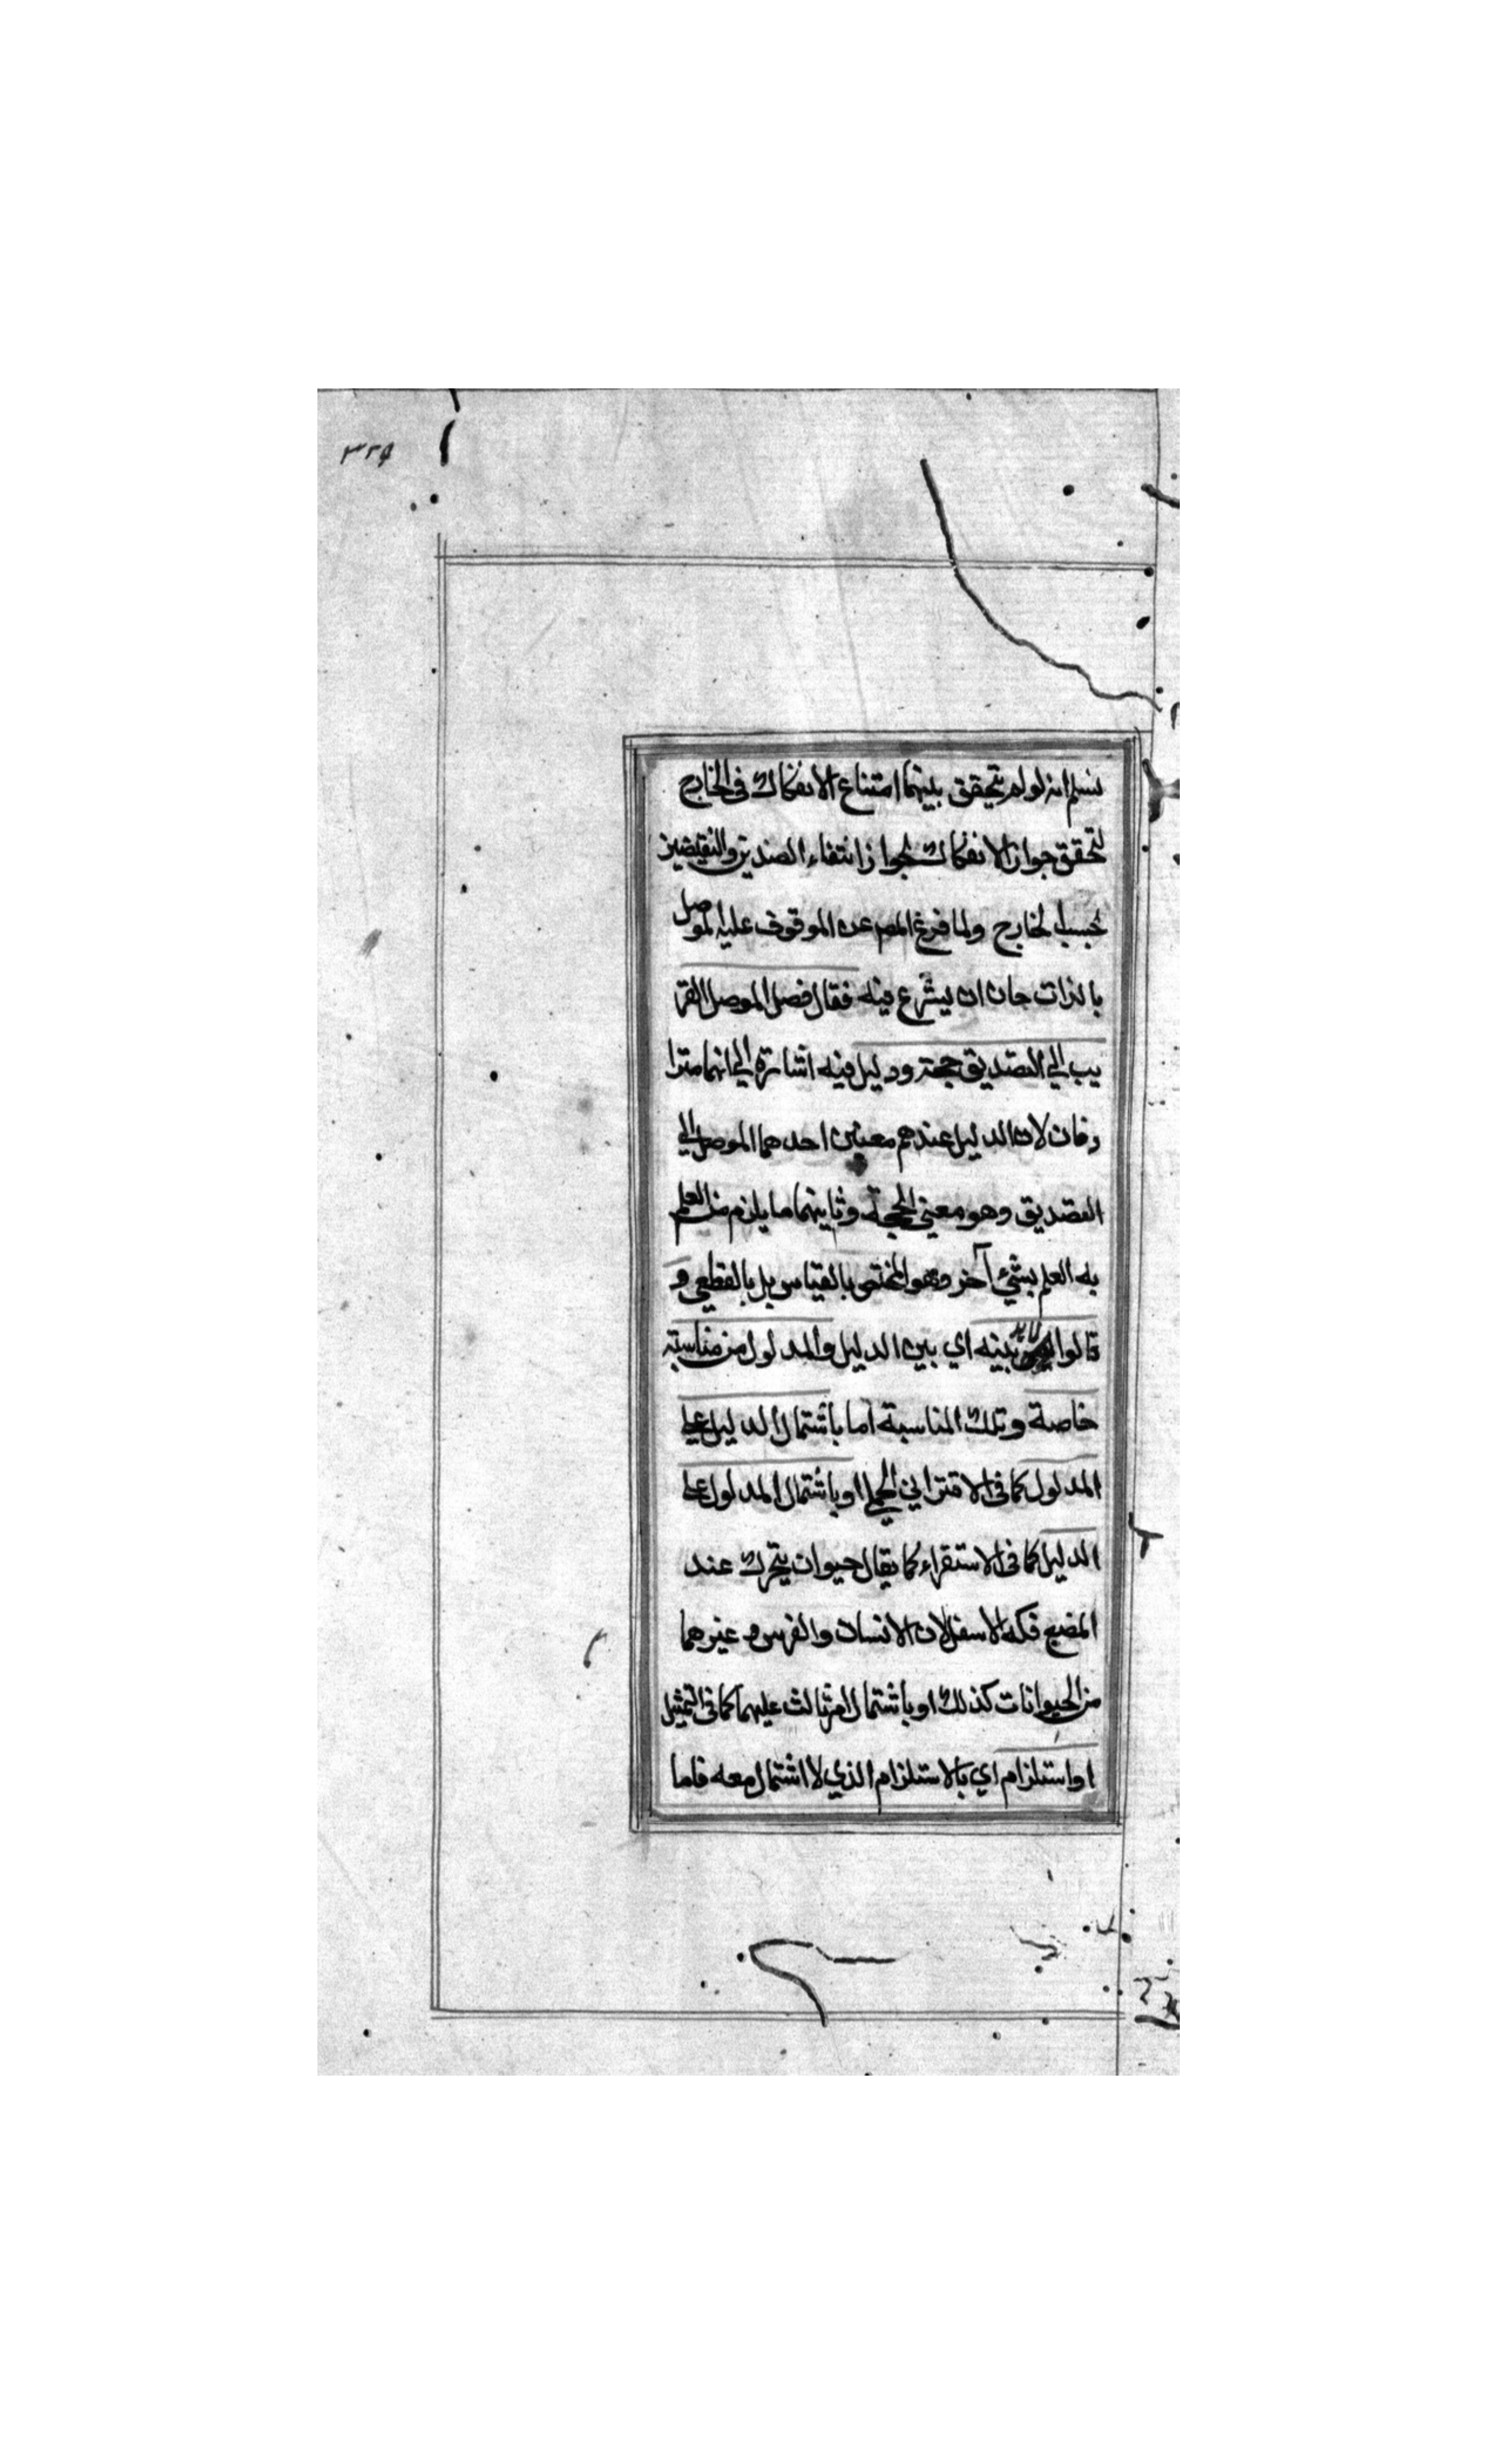 ٣٢٥
نسلم انه لو لم يتحقق بينهما امتناع الانفكاك فى الخارج
لتحقق جواز الانفكاك لجواز انتفاء الضدين والنقيضين
بحسب الخارج ولما فرغ المص عن الموقوف عليه لموصل
بالذات حان ان يشرع فيه فقال فصل الموصل القر
يب الي التصديق حجة ودليل فيه اشارة الي انهما مترا
دفان لان الدليل عندهم معنيين احدهما الموصل الي
التصديق وهو معني الحجة وثاينهما ما يلزم من العلم
به العلم بشئ آخر وهو المختص بالقياس بل بالقطعي و
قالوا لا بد بينه اي بين الدليل والمدلول من مناسبة
خاصة وتلك المناسبة اما باشتمال الدليل علي
المدلول كما فى الاقتراني الحملي او باشتمال المدلول علي
الدليل كما فى الاستقراء كما يقال حيوان يتحرك عند
المضغ فكه الاسفل لان الانسان والفرس و غيرهما
من الحيوانات كذلك او باشتمال امر ثالث عليهما كما فى التمثيل
او استلزام اي بالاستلزام الذي لا اشتمال معه فاما